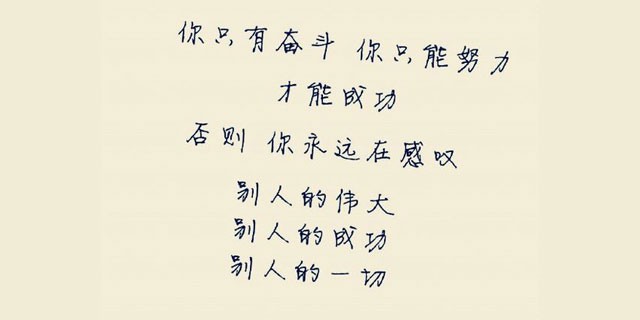 你只有奋斗 你只能努力
才能成功
否则 你永远在感叹
别人的伟大
别人的成功
别人的一切